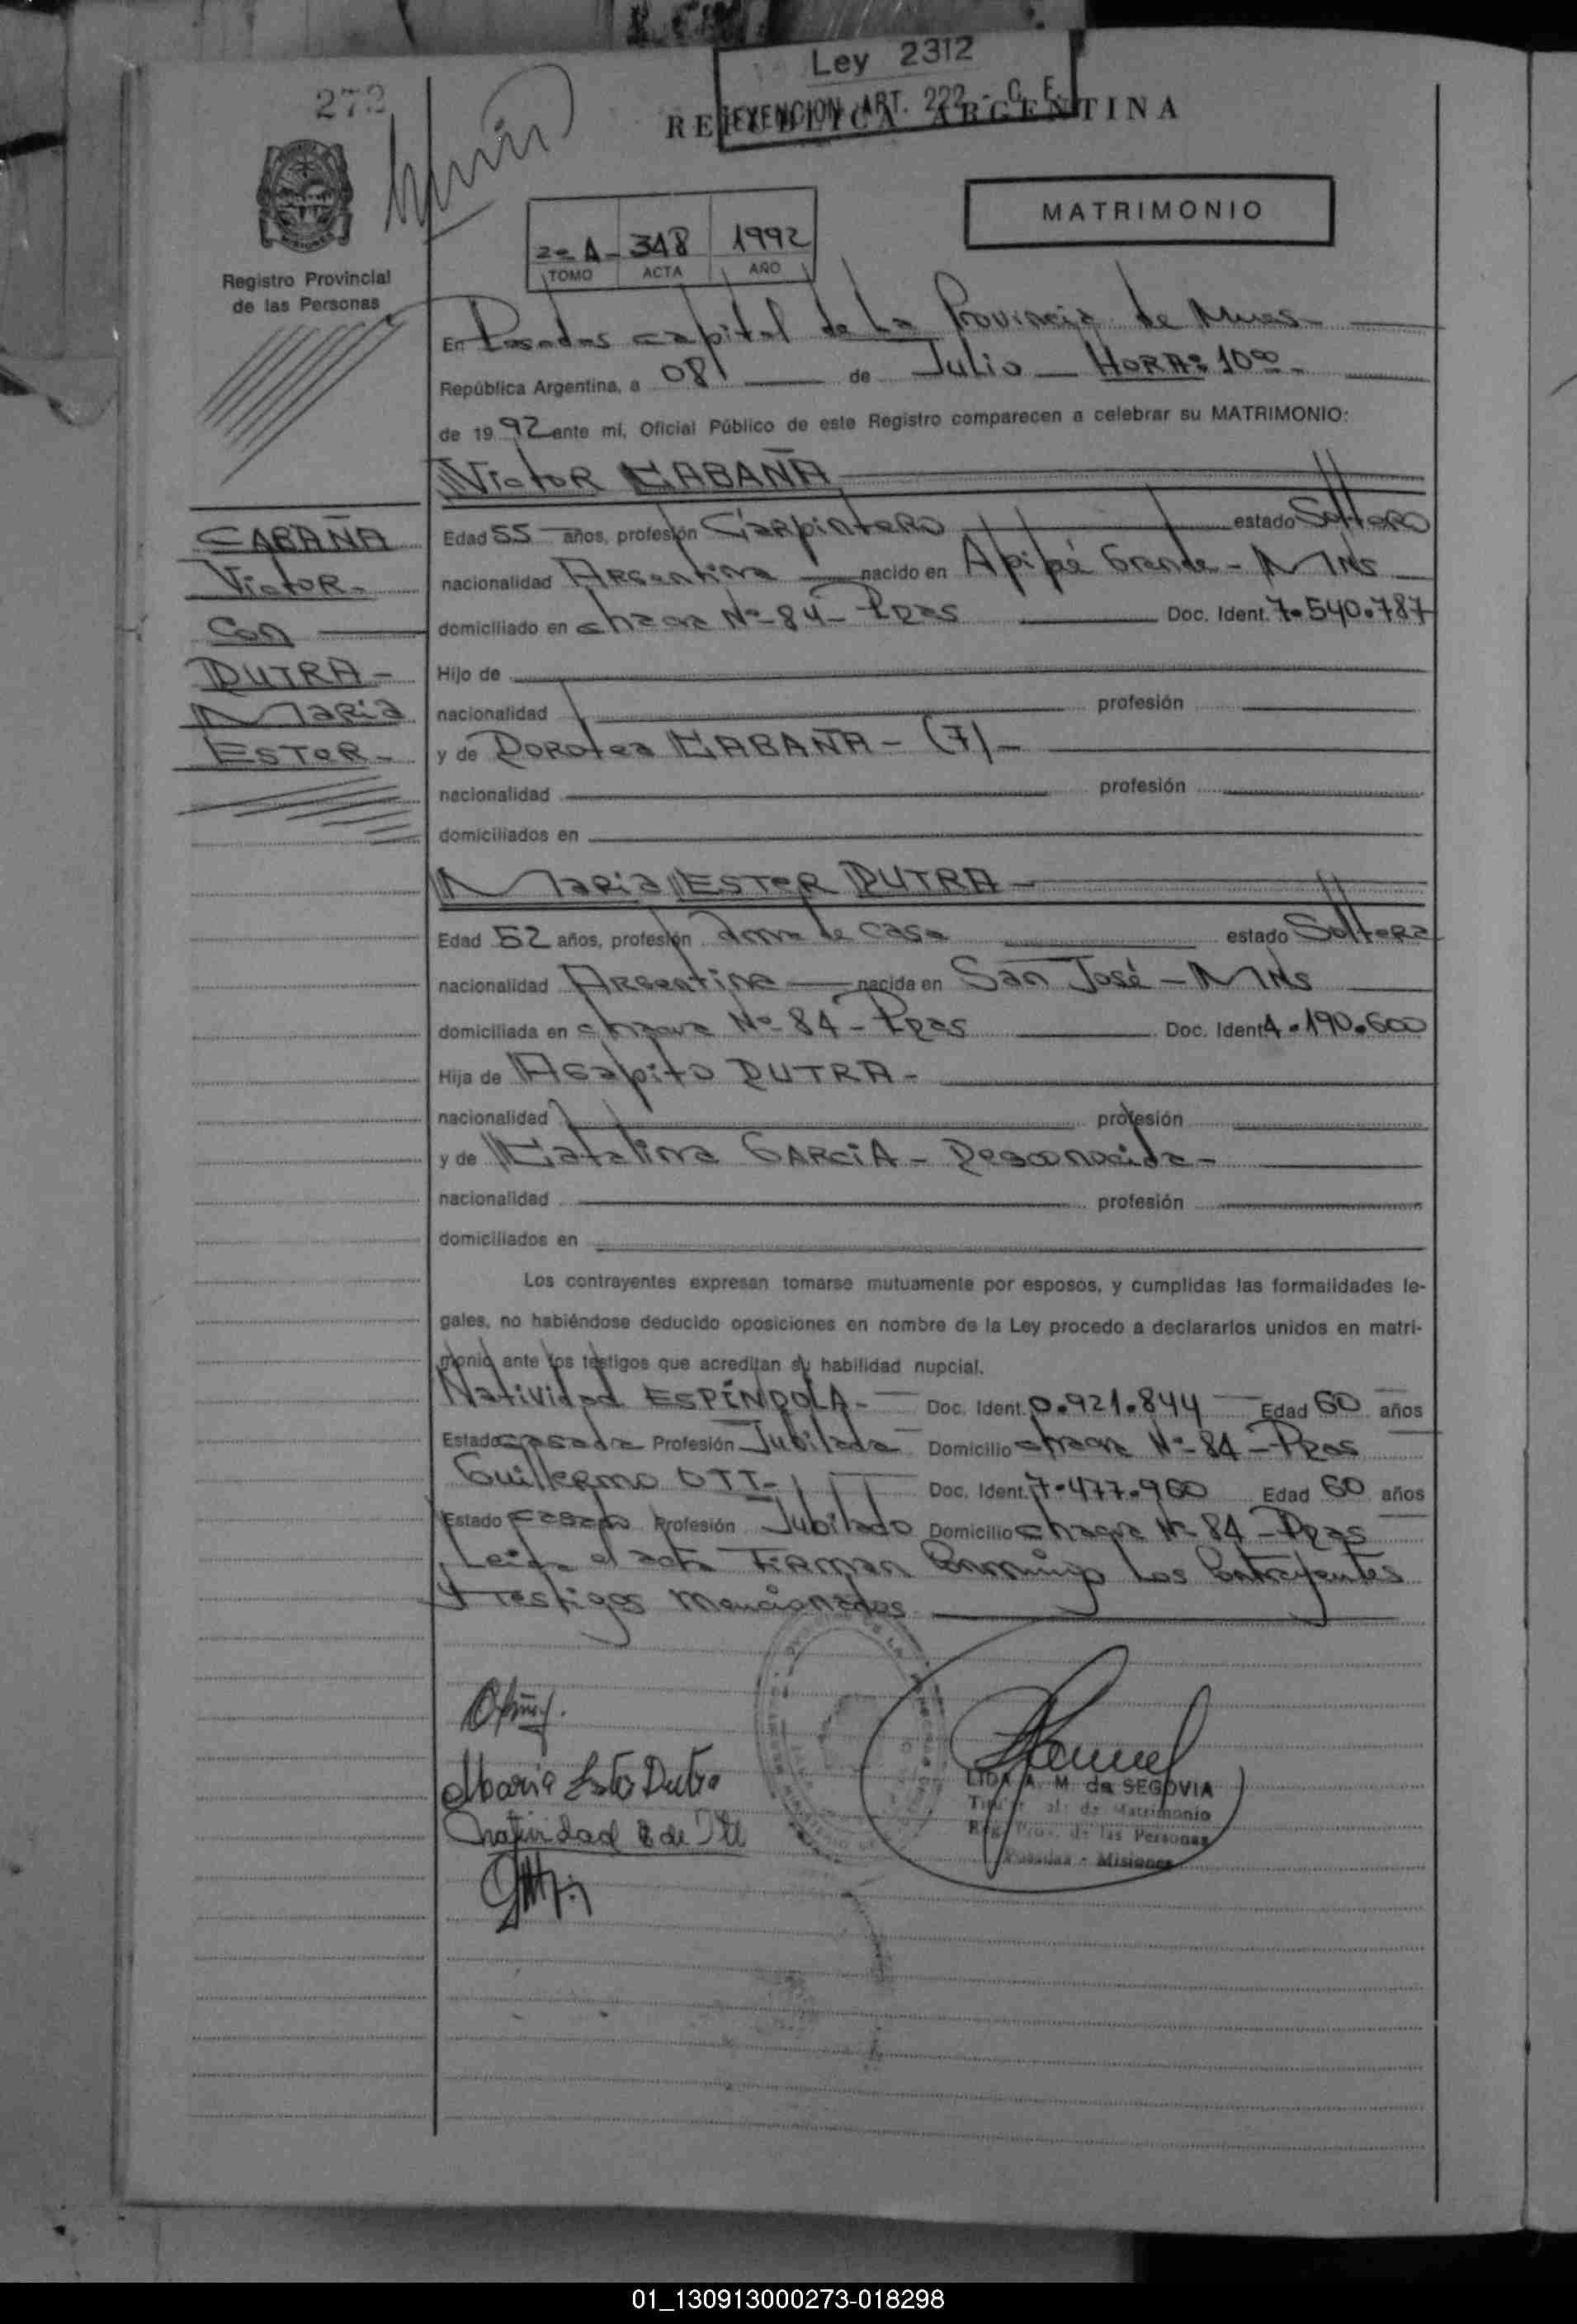 Ley 2312
EXENCION ART. 222 - C. F.
REPUBLICA ARGENTINA
272
MATRIMONIO
2º A - 348 1992
TOMO ACTA AÑO
Registro Provincial
de las Personas
En Posadas capital de La Provincia de Mnes
República Argentina, a 08 de Julio HORA: 10⁰⁰
de 1992 ante mí, Oficial Público de este Registro comparecen a celebrar su MATRIMONIO:
Victor CABAÑA
CABAÑA
Victor
Con
DUTRA
Maria
ESTER
Edad 55 años, profesión Carpintero estado Soltero
nacionalidad Argentina nacido en Apipé Grande - MNS
domiciliado en chacra Nº 84 - Ppas Doc. Ident. 7.540.787
Hijo de
nacionalidad profesión
y de Dorotea CABAÑA - (7) -
nacionalidad profesión
domiciliados en
Maria ESTER DUTRA
Edad 52 años, profesión ama de casa estado Soltera
nacionalidad Argentina nacida en San José - MNS
domiciliada en chacra Nº 84 - Ppas Doc. Ident 4.190.600
Hija de Agapito DUTRA -
nacionalidad profesión
y de Catalina GARCIA - Desconocida -
nacionalidad profesión
domiciliados en
Los contrayentes expresan tomarse mutuamente por esposos, y cumplidas las formalidades le-
gales, no habiéndose deducido oposiciones en nombre de la Ley procedo a declararlos unidos en matri-
monio ante los testigos que acreditan su habilidad nupcial.
Natividad ESPÍNDOLA - Doc. Ident. 0.921.844 Edad 60 años
Estado casada Profesión Jubilada Domicilio chacra Nº 84 - Ppas
Guillermo OTT - Doc. Ident. 7.477.960 Edad 60 años
Estado casado Profesión Jubilado Domicilio chacra Nº 84 - Ppas
Leida el acta Firman Conmigo Los Contrayentes
y Testigos Mencionados
Maria Ester Dutra
Natividad E de Ott
LIDA A. M. de SEGOVIA
de Matrimonio
Reg. Prov. de las Personas
Posadas - Misiones
01_130913000273-018298